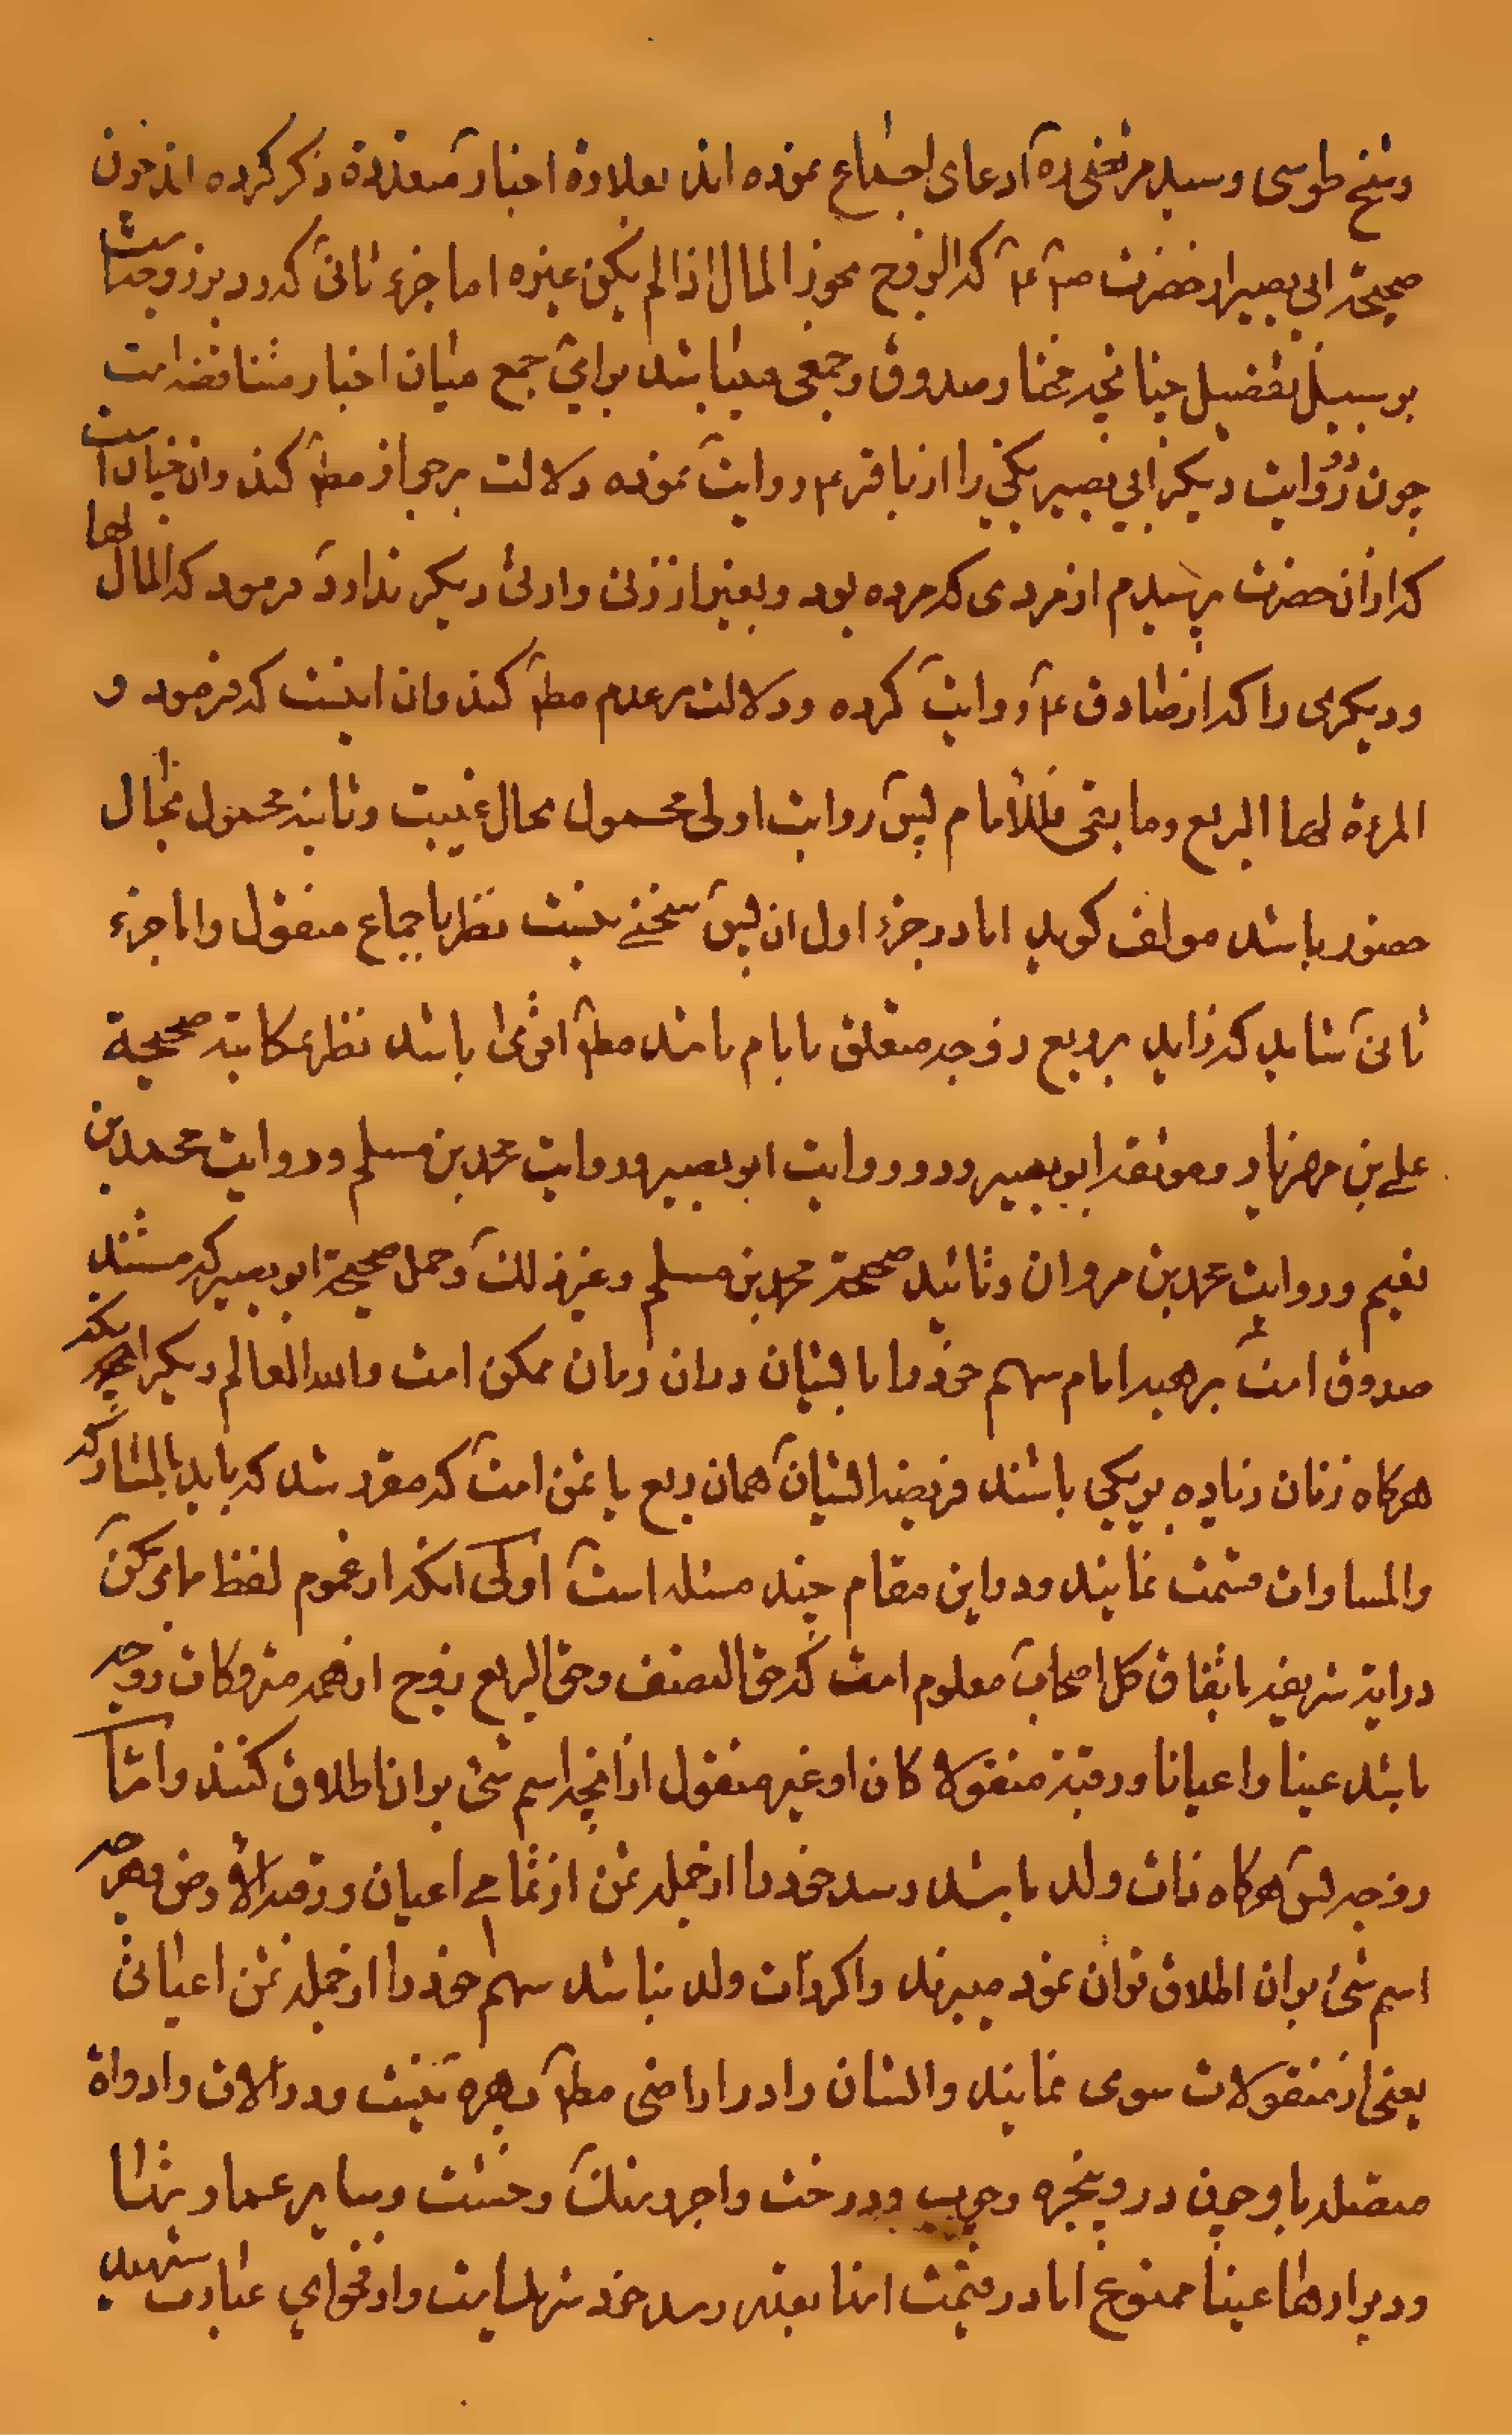 وشیخ طوسی وسید مرتضی ره ادعای اجماع نموده اند بعلاوه اخبار متعدده ذکر کرده اند چون
صحیحة ابی بصیر از حضرت ص ع که الزوج یحوز المال اذا لم یکن غیره اما جزء ثانی که رد بر زوجه است
بر سبیل تفصیل چنانچه مختار صدوق و جمعی میباشد برای جمع میان اخبار متناقضه است
چون دو روایت دیگر ابی بصیر یکی را از باقر ع روایت نموده دلالت بر جواز مط کند وان چنان است
که از ان حضرت پرسیدم از مردی که مرده بود و بغیر از زنی وارثی دیگر ندارد فرمود که المال لها
و دیکری را که از صادق ع روایت کرده و دلالت بر عدم مط کند وان اینست که فرمود و
المرءة لها الربع وما بقی فللامام پس روایت اولی محمول بحال غیبت وثانیه محمول بحال
حضور باشد مولف کوید اما در جزء اول ان پس سخنی نیست نظر باجماع منقول واما جزء
ثانی شاید که زاید بر ربع زوجه متعلق بامام باشد مط اقوی باشد نظر بمکاتبة صحیحة
علی بن مهزیار وموثقه ابو بصیر ودو روایت ابو بصیر وروایت محمد بن مسلم وروایت محمد بن
نعیم وروایت محمد بن مروان وتائید صحیحة محمد بن مسلم وغیر ذلک وحمل صحیحة ابو بصیر که مستند
صدوق است بر هبه امام سهم خود را بایشان دران زمان ممکن است والله العالم دیکر اینکه
هرکاه زنان زیاده بر یکی باشند فریضه ایشان همان ربع یا ثمن است که مقرر شد که باید بالمشارکة
والمساوات قسمت نمایند ودر این مقام چند مسئله است اولی انکه از عموم لفظ ما ترکن
در ایة شریفه باتفاق کل اصحاب معلوم است که حق النصف وحق الربع زوج از همه متروکات زوجه
باشد عینا واعیانا ورقبة منقولا کان او غیر منقول از انچه اسم شی بر ان اطلاق کنند واما
زوجه پس هرکاه ذات ولد باشد رسد خود را از جمله ثمن از تمامی اعیان ورقبه الارض وهرچه
اسم شی بر ان اطلاق توان نمود میبرند واکر ذات ولد نباشد سهم خود را از جمله ثمن اعیانی
یعنی از منقولات سوی نمایند وایشان را در اراضی مط بهره نیست ودر الات وادواة
متصله باو چون در وپنجره وچوب ودرخت واجر وسنک وخشت وسایر عمارتها
ودیوارها عینا ممنوع اما در قیمت اینا بقدر رسد خود شریک است واز فحوای عبارت شهید